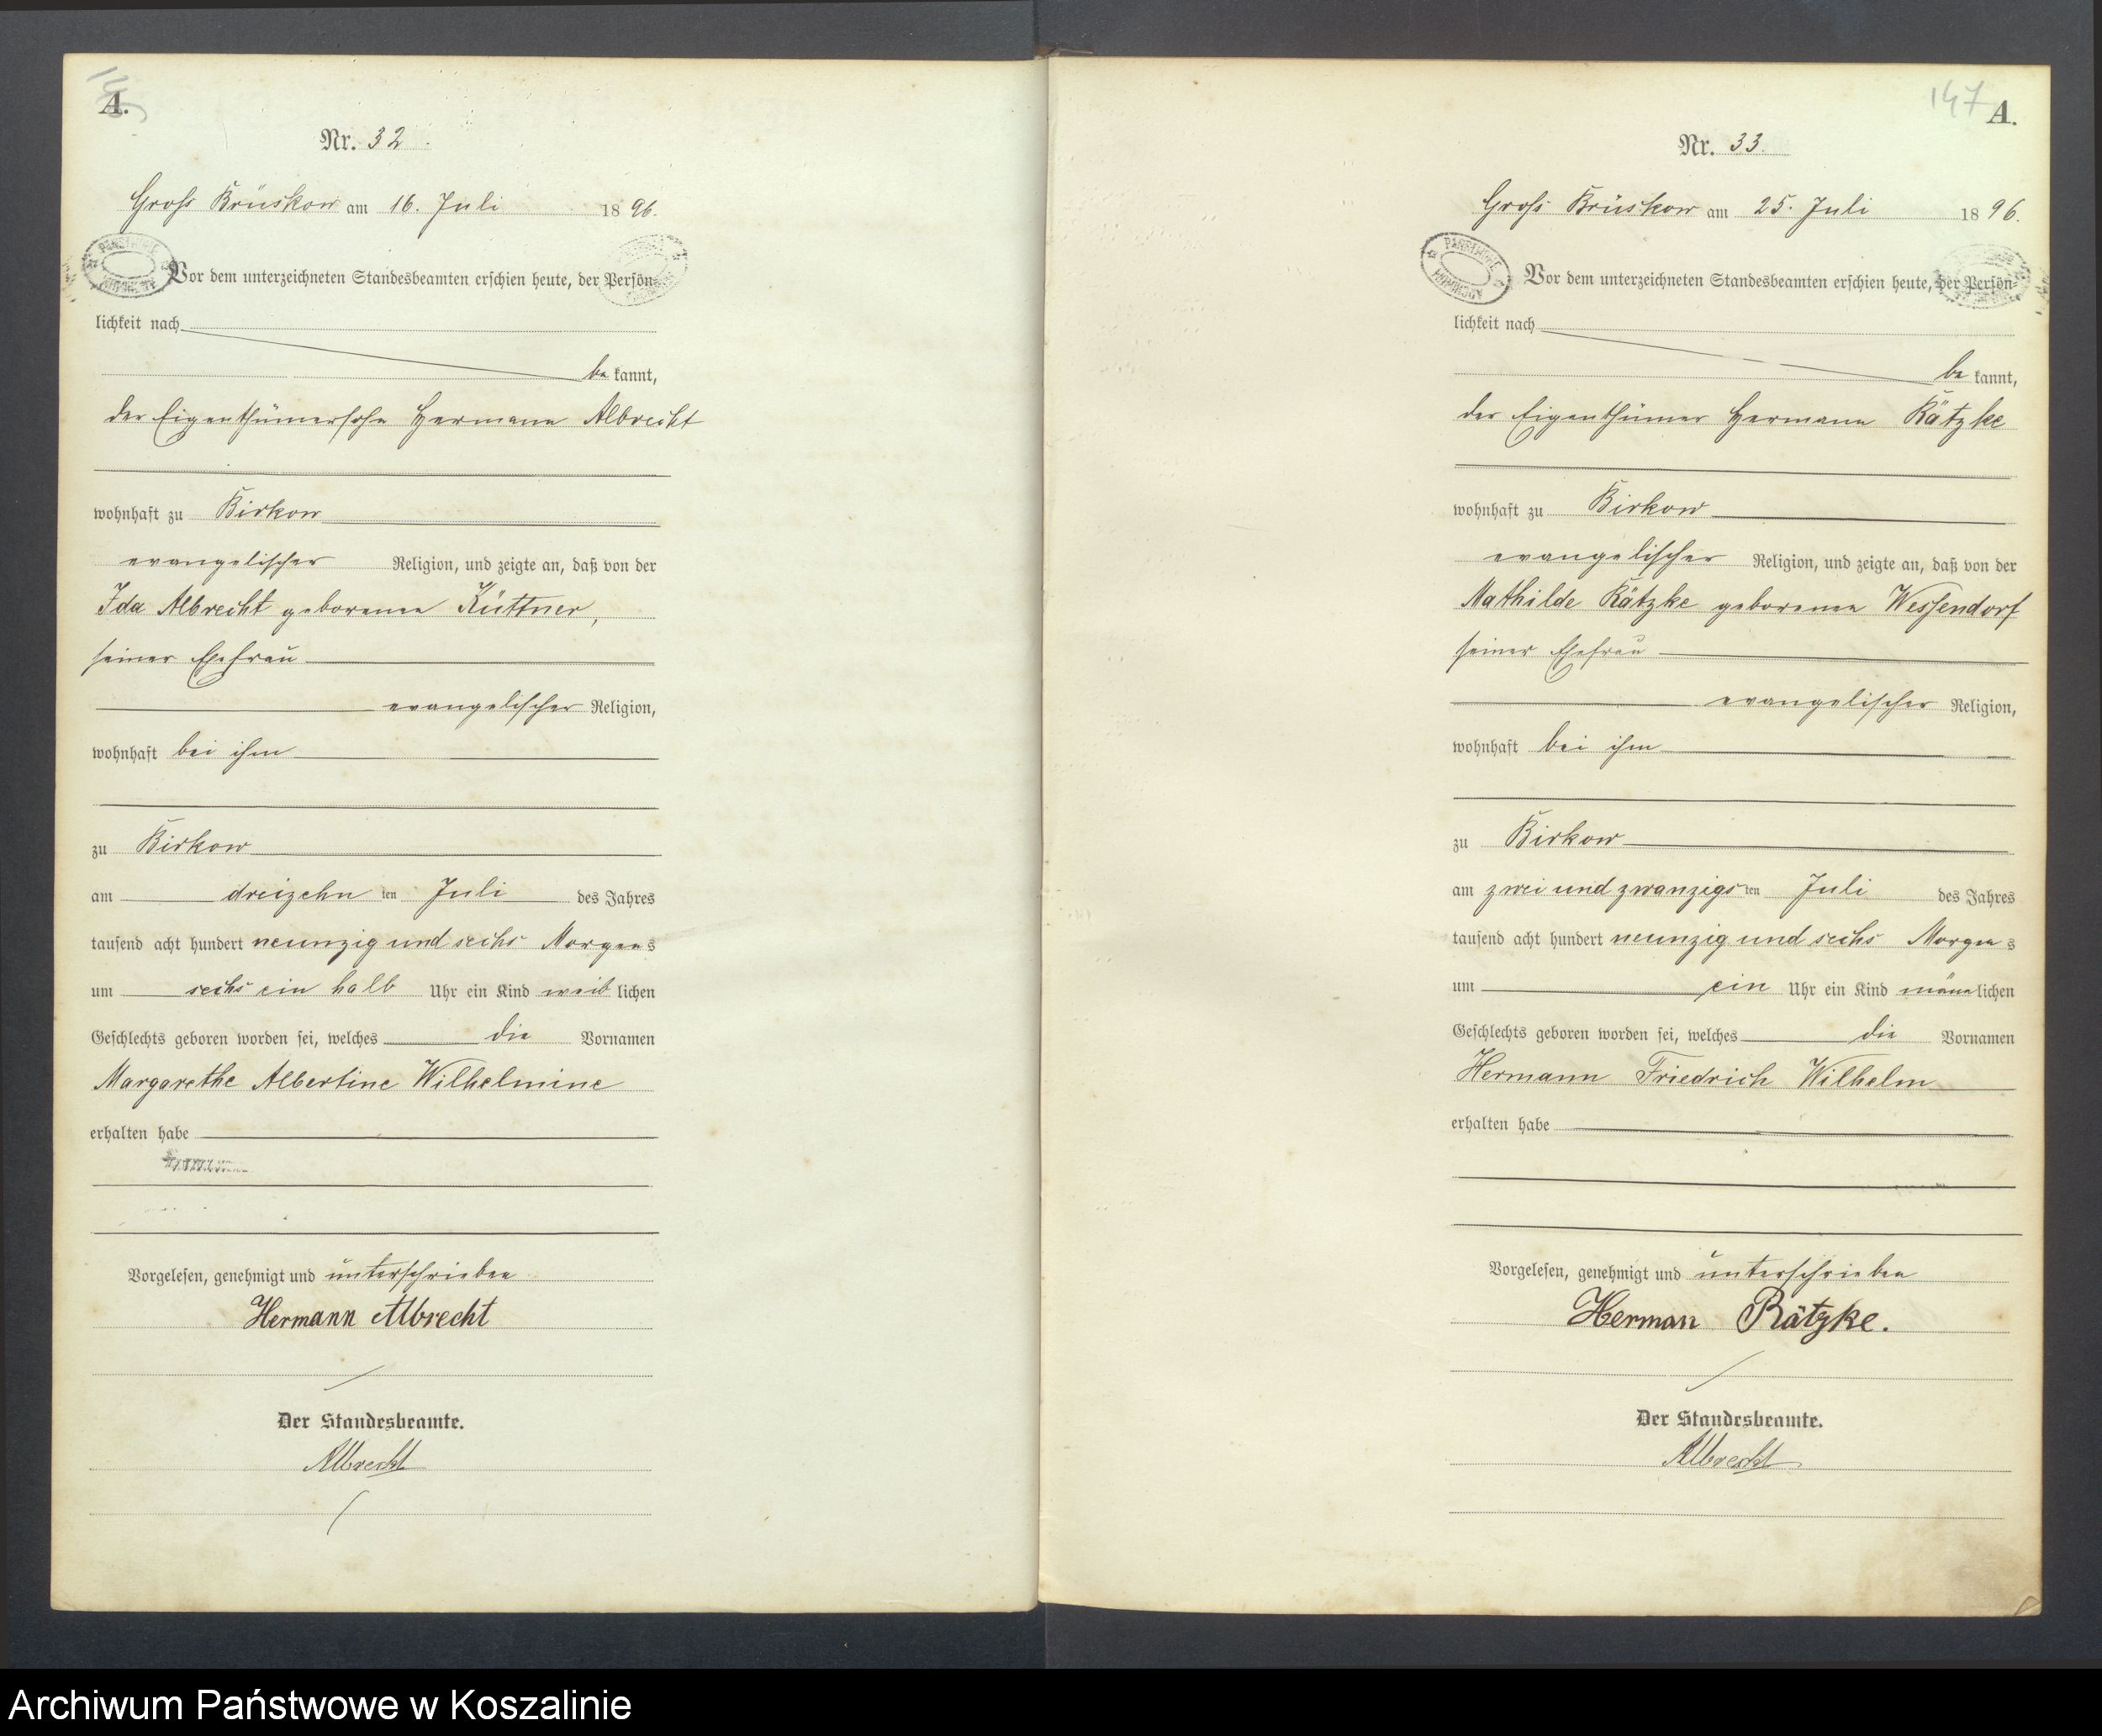 A.
Nr. 32.
Groß Brüskow am 16. Juli 1896.
Vor dem unterzeichneten Standesbeamten erschien heute, der Persön-
lichkeit nach
be kannt,
der Eigenthümersohn Hermann Albrecht
wohnhaft zu Birkow
evangelischer Religion, und zeigte an, daß von der
Ida Albrecht geborenen Küttner,
seiner Ehefrau
evangelischer Religion,
wohnhaft bei ihm
zu Birkow
am dreizehn ten Juli des Jahres
tausend acht hundert neunzig und sechs Morgens
um sechs ein halb Uhr ein Kind weib lichen
Geschlechts geboren worden sei, welches die Vornamen
Margarethe Albertine Wilhelmine
erhalten habe
Vorgelesen, genehmigt und unterschrieben
Hermann Albrecht
Der Standesbeamte.
Albrecht
147
A.
Nr. 33.
Groß Brüskow am 25. Juli 1896.
Vor dem unterzeichneten Standesbeamten erschien heute, der Persön-
lichkeit nach
be kannt,
der Eigenthümer Hermann Rätzke
wohnhaft zu Birkow
evangelischer Religion, und zeigte an, daß von der
Mathilde Rätzke geborenen Wessendorf
seiner Ehefrau
evangelischer Religion,
wohnhaft bei ihm
zu Birkow
am zwei und zwanzigs ten Juli des Jahres
tausend acht hundert neunzig und sechs Morgens
um ein Uhr ein Kind männ lichen
Geschlechts geboren worden sei, welches die Vornamen
Hermann Friedrich Wilhelm
erhalten habe
Vorgelesen, genehmigt und unterschrieben
Herman Rätzke.
Der Standesbeamte.
Albrecht
Archiwum Państwowe w Koszalinie